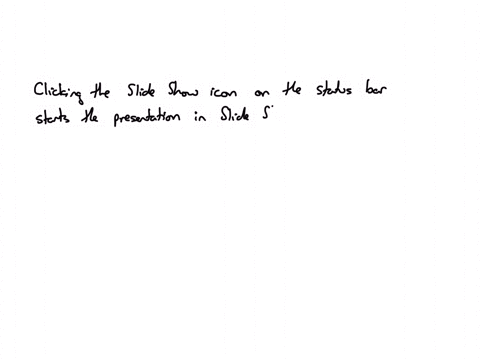 Clicking the Slide Show icon on the status bar
starts the presentation in Slide S